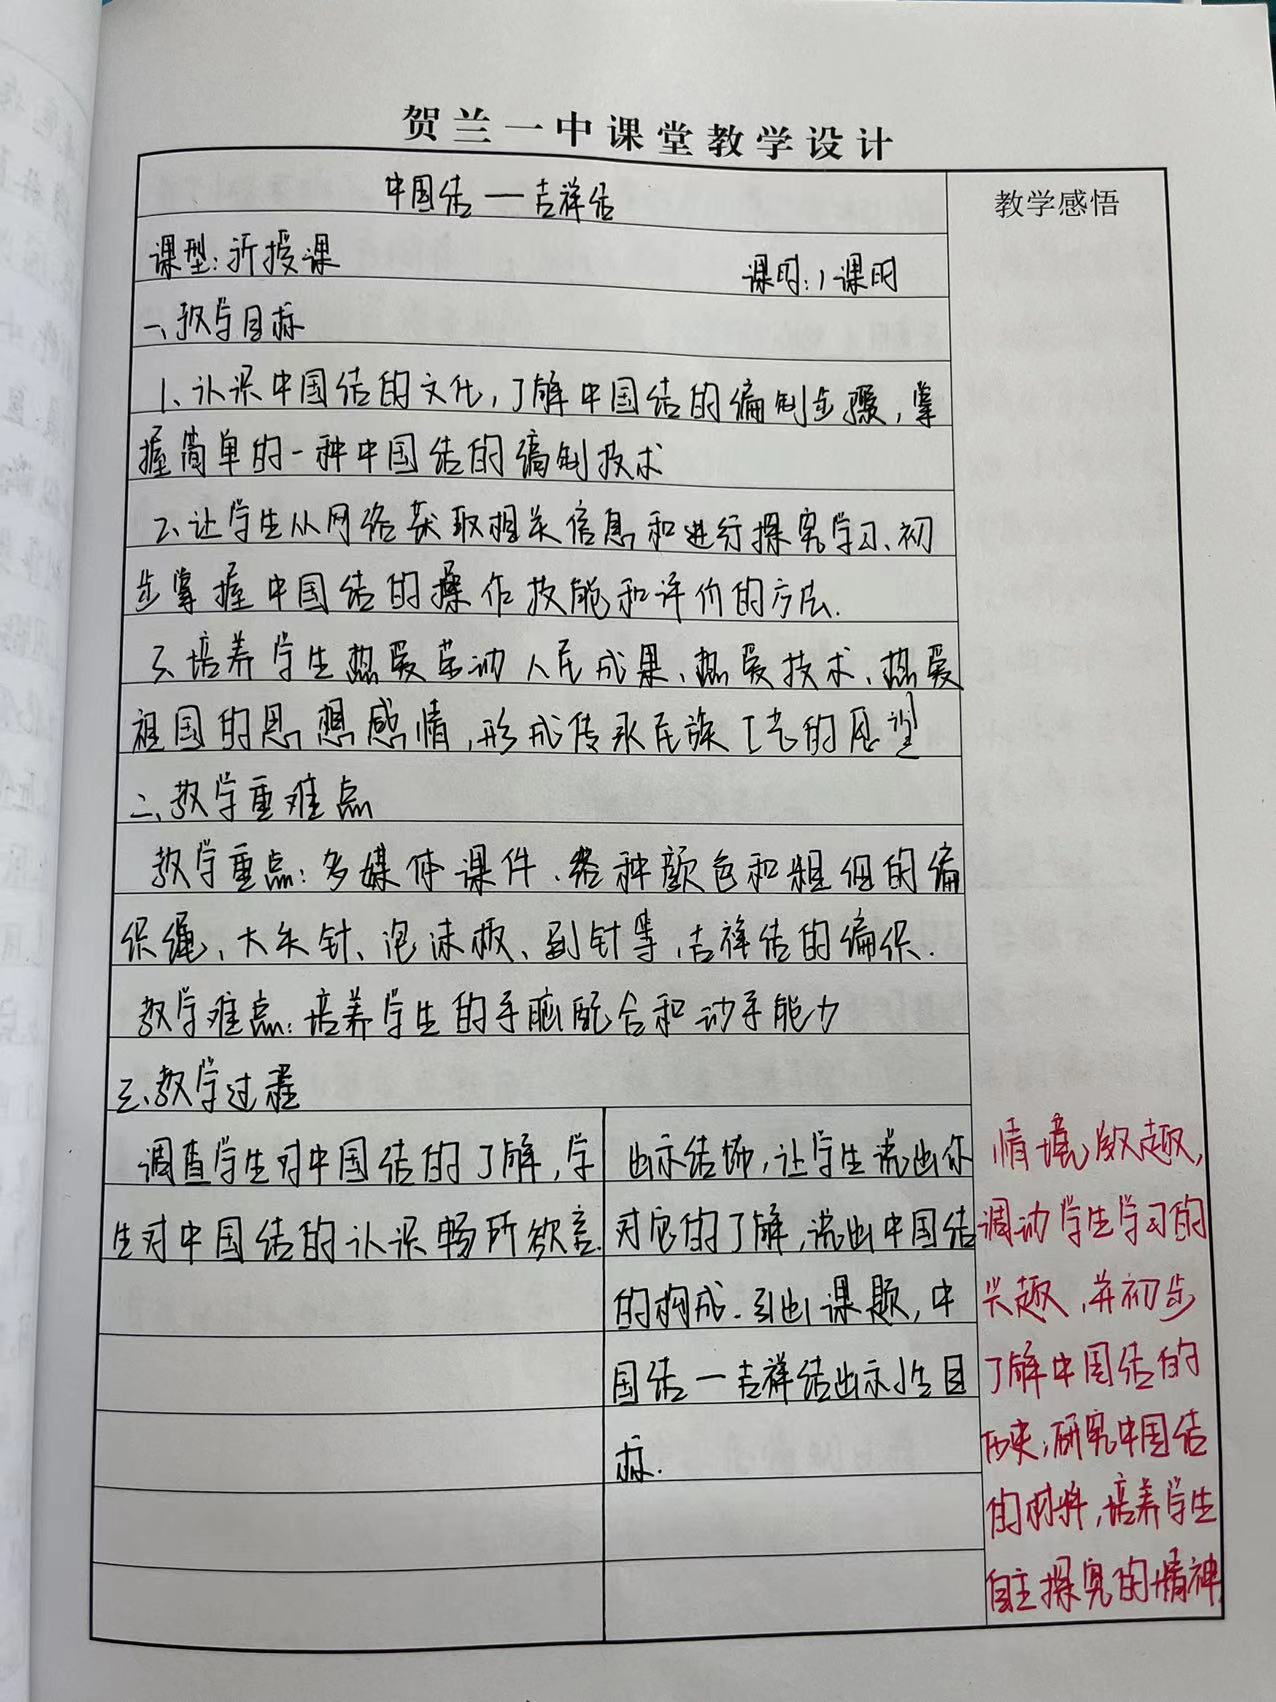 贺兰一中课堂教学设计
中国结一吉祥结
教学感悟
课型:新授课
课时:1课时
一、教学目标
1、认识中国结的文化,了解中国结的编制步骤,掌
握简单的一种中国结的编制技术
2、让学生从网络获取相关信息和进行探究学习、初
步掌握中国结的操作技能和评价的方法.
3、培养学生热爱劳动人民成果、热爱技术、热爱
祖国的思想感情,形成传承民族工艺的愿望
二、教学重难点
教学重点:多媒体课件、各种颜色和粗细的编
织绳、大头针、泡沫板、割针等,吉祥结的编织.
教学难点:培养学生的手脑配合和动手能力
三、教学过程
调查学生对中国结的了解,学
生对中国结的认识畅所欲言.
出示结饰,让学生说出你
对它的了解,说出中国结
的构成.引出课题,中
国结一吉祥结出示学生目
标.
情境激趣,
调动学生学习的
兴趣,并初步
了解中国结的
历史,研究中国结
的材料,培养学生
自主探究的精神.